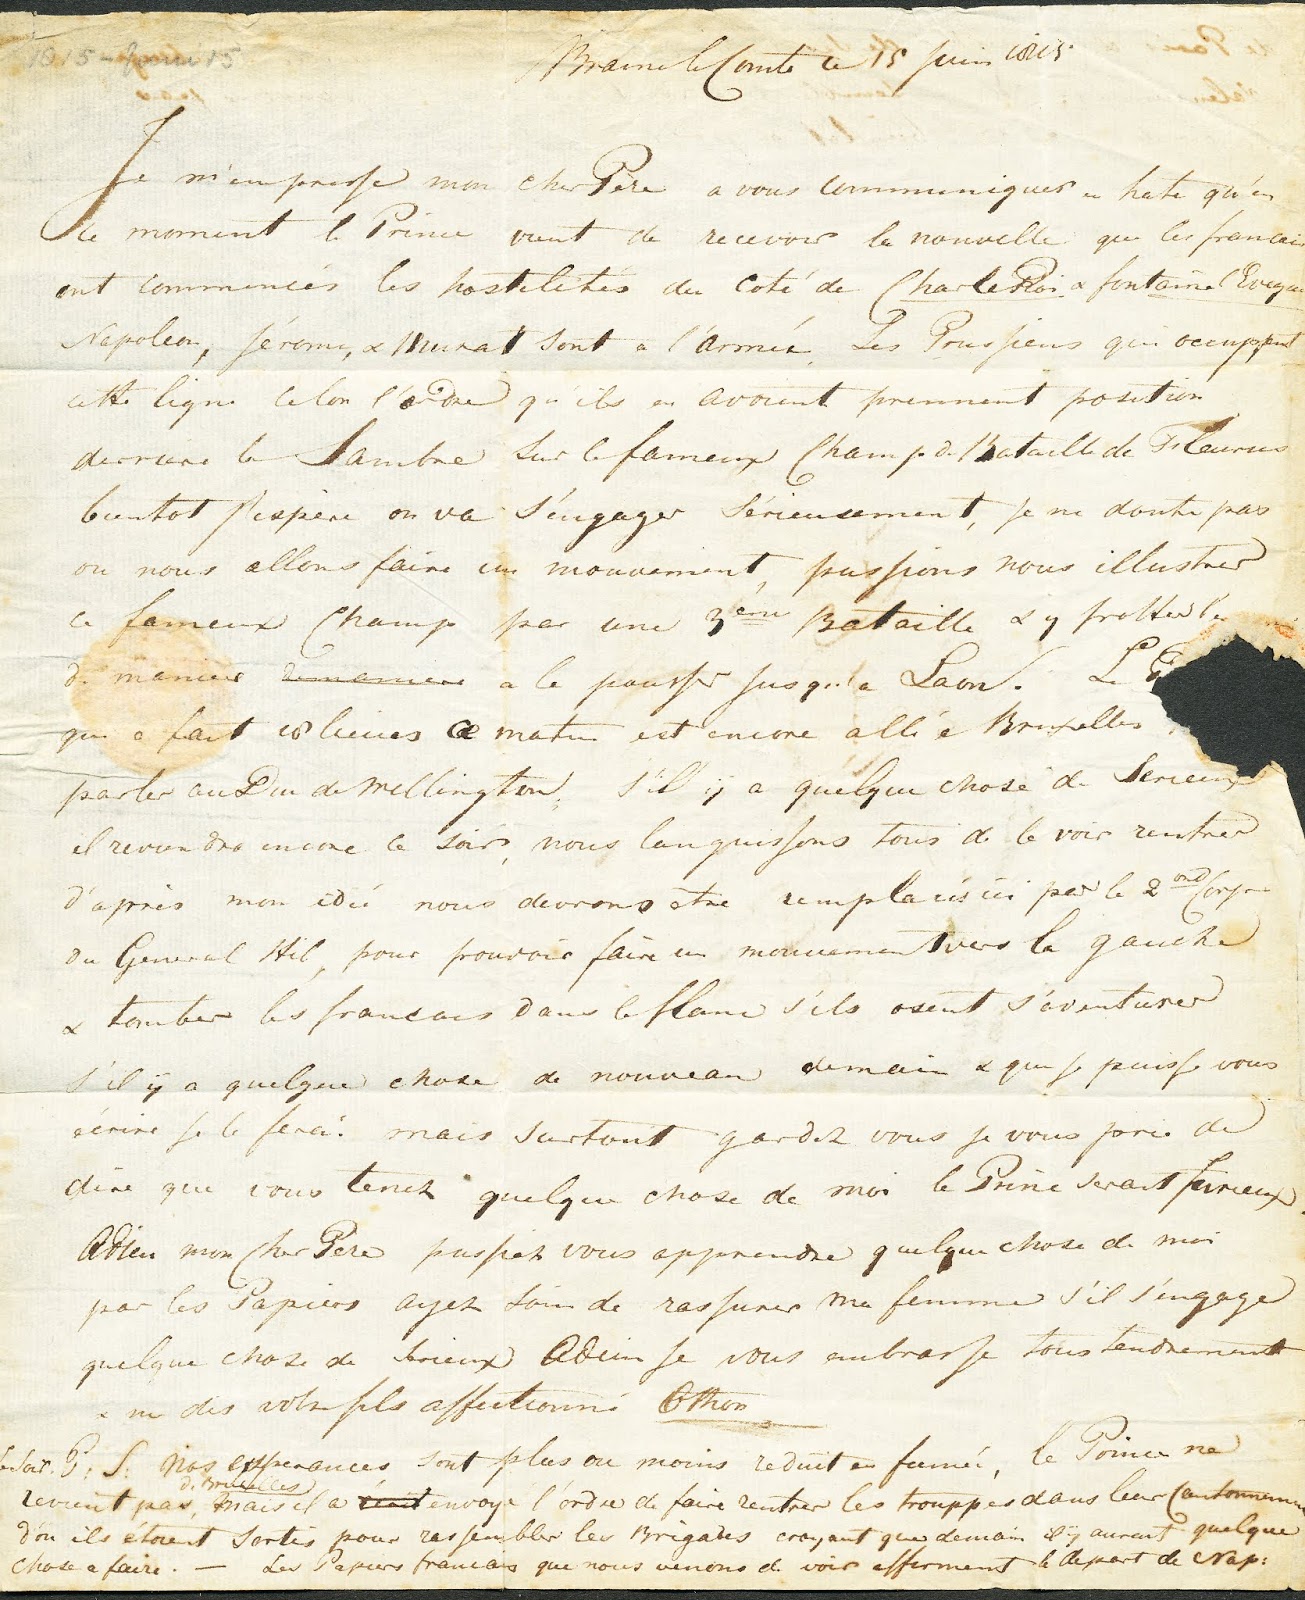 1815 - Juin 15
Braine le Comte ce 15 Juin 1815
Je m'empresse mon cher Père a vous communiquer en hate qu'en
ce moment le Prince vient de recevoir la nouvelle que les francais
ont commencés les hostelités du coté de CharleRoi & fontaine l'Eveque
Napoleon, Jérome, & Murat sont a l'Armée. Les Prussiens qui occuppent
cette ligne selon l'ordre qu'ils en avoient prennent position
derriere la Sambre sur le fameux Champ de Bataille de Fleurus
bientot j'espère on va s'engager sérieusement, je ne doute pas
ou nous allons faire un mouvement, puissions nous illustrer
ce fameux Champ par une 3ème Bataille & y frotter les
de maniere a le pousser jusqu'a Laon. Le P
qui a fait 18 lieues ce matin est encore allé a Bruxelles
parler au Duc de Wellington, s'il y a quelque chose de serieux
il reviendra encore ce soir, nous languissons tous de le voir rentrer
d'après mon idée nous devrons etre remplacés ici par le 2ond Corps
du General Hil, pour pouvoir faire un mouvement vers la gauche
& tomber les francais dans le flanc s'ils osent s'aventurer
s'il y a quelque chose de nouveau demain & que je puisse vous
écrire je le ferai. mais surtout gardez vous je vous prie de
dire que vous tenez quelque chose de moi le Prince serait furieux.
Adieu mon cher Père puissiez vous apprendre quelque chose de moi
par les Papiers ayez soin de rassurer ma femme s'il s'engage
quelque chose de serieux Adieu je vous embrasse tous tendrement
& me dis votre fils affectionné Othon
le soir. P. S. Nos esperances sont plus ou moins reduit en fumée, le Prince ne
revient pas de Bruxelles, mais il a envoyé l'ordre de faire rentrer les trouppes dans leur Cantonnement
d'ou ils étoient sortis pour rassembler les Brigades croyant que demain il y auroit quelque
chose a faire. — Les Papiers francais que nous venons de voir afferment le depart de Nap: